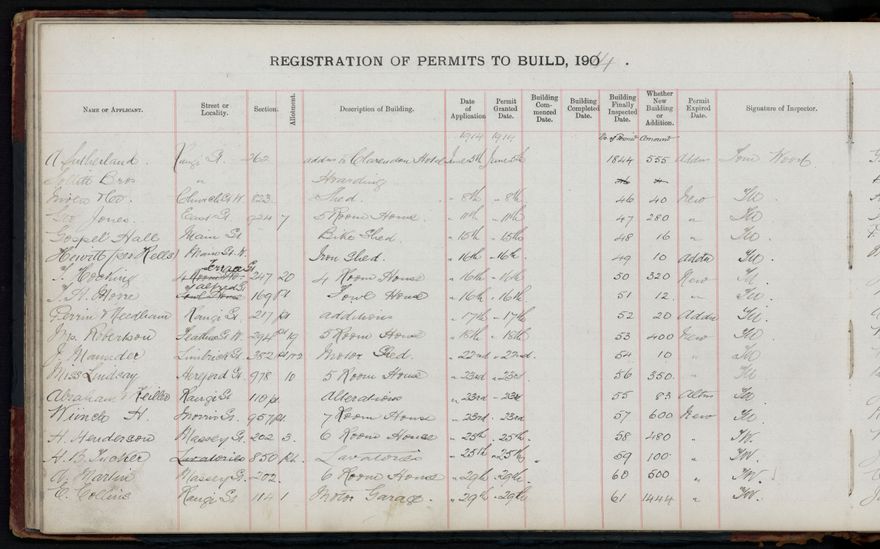 REGISTRATION OF PERMITS TO BUILD, 1904.
NAME OF APPLICANT. Street or Locality. Section. Allotment. Description of Building. Date of Application Permit Granted Date. Building Commenced Date. Building Completed Date. Building Finally Inspected Date. Whether New Building or Addition. Permit Expired Date. Signature of Inspector.
1914 1914 No of Permit Amount
A Sutherland. Rangi St. 262 addns to Clarendon Hotel June 5th June 5th 1844 555 Addns Tom Wood
Bros " Hoarding
& Co. Church St W. 823 Shed. " 8th " 8th 46 40 New TW
Geo Jones. East St 924 7 5 Room House. " 10th " 10th 47 280 " TW
Gospel Hall Main St Bike Shed. " 15th " 15th 48 16 " TW
Hewitt (per Kells) Main St. W. Iron Shed. " 16th " 16th. 49 10 Addn TW
T. Hocking St 247 20 4 Room House " 16th " 16th 50 320 New TW
T. H. Alfred St 169 pt Fowl House " 16th " 16th 51 12. " TW
& Needham Rangi St. 217 pt additions " 17th " 17th 52 20 Addn TW
Jno. Robertson St. W. 294 pt 19 5 Room House " 18th " 18th 53 400 New TW
J. Limbrick St. 352 pt 172 Motor Shed. " 22nd " 22nd. 54 10 " TW
Miss Lindsay Hereford St. 978 10 5 Room House " 23rd " 23rd. 56 350. " TW
Abraham & Rangi St 110 pt Alterations " 23rd " 23rd 55 83 Altns TW
H Morris St. 957 pt. 7 Room House " 23rd " 23rd 57 600 New TW
H. Henderson Massey St. 202 3. 6 Room House " 25th " 25th. 58 480 " TW.
H. B. Lavatories 850 pt 6 Lavatories " 25th " 25th. " 59 100 " TW.
A. Martin Massey St. 202. 6 Room House " 29th " 29th. 60 500 " TW.
C. Collins Rangi St 114 1 Motor Garage. " 29th " 29th 61 1444 " TW.